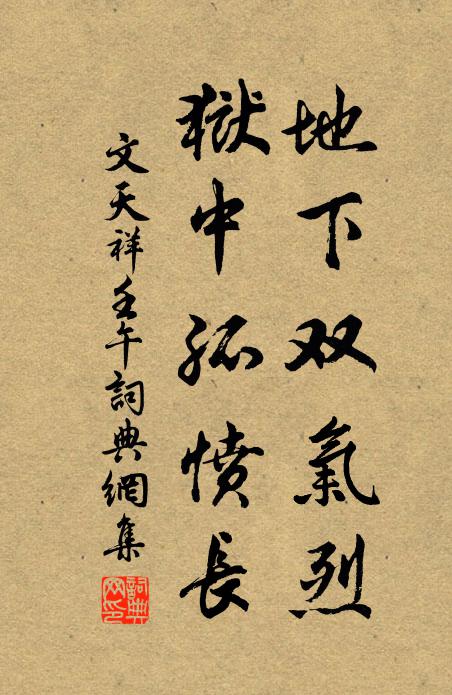 地下双氣烈
獄中孤憤長
文天祥壬午詞典網集
詞典网印